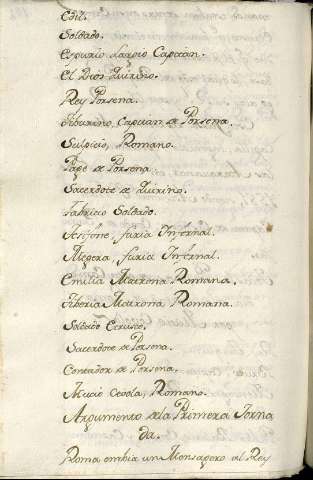 Edil.
Soldado.
Espurio Largio Capitan.
El Dios Quirino.
Rey Porsena.
Tiburino, Capitan de Porsena.
Sulpicio, Romano.
Page de Porsena.
Sacerdote de Quirino.
Fabricio Soldado.
Tesifone, furia Infernal.
Megera, furia Infernal.
Emilia Matrona Romana.
Tiberia Matrona Romana.
Soldado Etrusco.
Sacerdote de Porsena.
Contador de Porsena.
Mucio Cevola, Romano.
Argumento de la Primera Jorna
da.
Roma embia un Mensagero al Rey